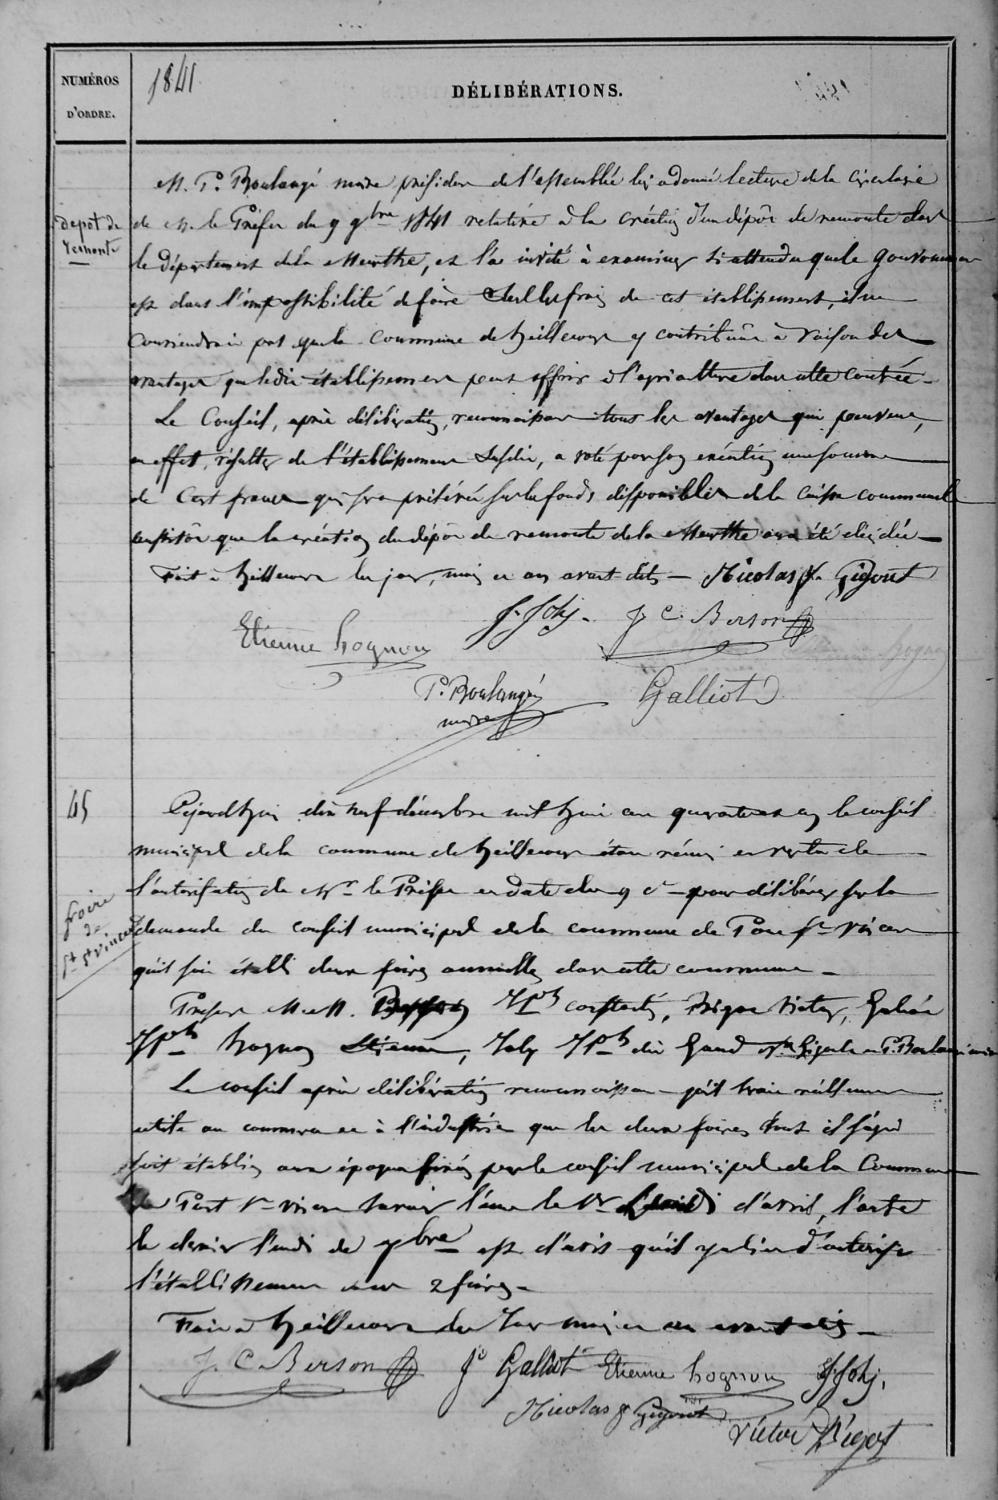 NUMÉROS
D'ORDRE.
1841
DÉLIBÉRATIONS.
M. P. Boulangé maire président de l'assemblée lui a donné lecture de la circulaire
Depot de
remonte
de Mr le Préfet du 9 9bre 1841 relative à la création d'un dépôt de remonte dans
le département de la Meurthe, et l'a invité à examiner si attendu que le Gouvernement
est dans l'impossibilité de faire seul les frais de cet établissement, il ne
conviendrait pas que la commune de heillecourt y contribuât à raison des
avantages que ledit établissement peut offrir à l'agriculture dans cette contrée.
Le Conseil, après délibération, reconnaissant tous les avantages qui peuvent,
en effet, résulter de l'établissement susdit, a voté pour son exécution une somme
de Cent francs qui sera prélevée sur les fonds disponibles de la caisse communale
aussitôt que la création du dépôt de remonte de la Meurthe aura été décidée
Fait à heillecourt les jour, mois et an avant dits — Nicolas Gigout
Etienne hognon J. Joly. J C. Berson
P. Boulangé Galliot
maire
45
Cejourd'hui dix neuf décembre mil huit cent quarante et un le conseil
municipal de la commune de heillecourt étant réuni en vertu de
l'autorisation de Mr le Préfet en date du 9 Ct pour délibérer sur la
foire
de
Pt St Vincent
demande du conseil municipal de la commune de Pont St Vincent
qu'il soit établi deux foires annuelles dans cette commune.
Présens M.M. Jph Victor, Galliot
Jph hognon Etienne, Joly Jph P. Boulangé maire
Le conseil après délibération reconnaissant qu'il serait réellement
utile au commerce et à l'industrie que les deux foires dont il s'agit
soit établies aux époques fixées par le conseil municipal de la Commune
de Pont St vincent savoir l'une le 1er Lundi d'avril, l'autre
le dernier lundi de 7bre est d'avis qu'il y a lieu d'autoriser
l'établissement 2 foires.
Fait à heillecourt les Jour mois et an avant dits.
J. C. Berson J. Galliot Etienne hognon J Joly.
Nicolas Gigout
victor Bigot